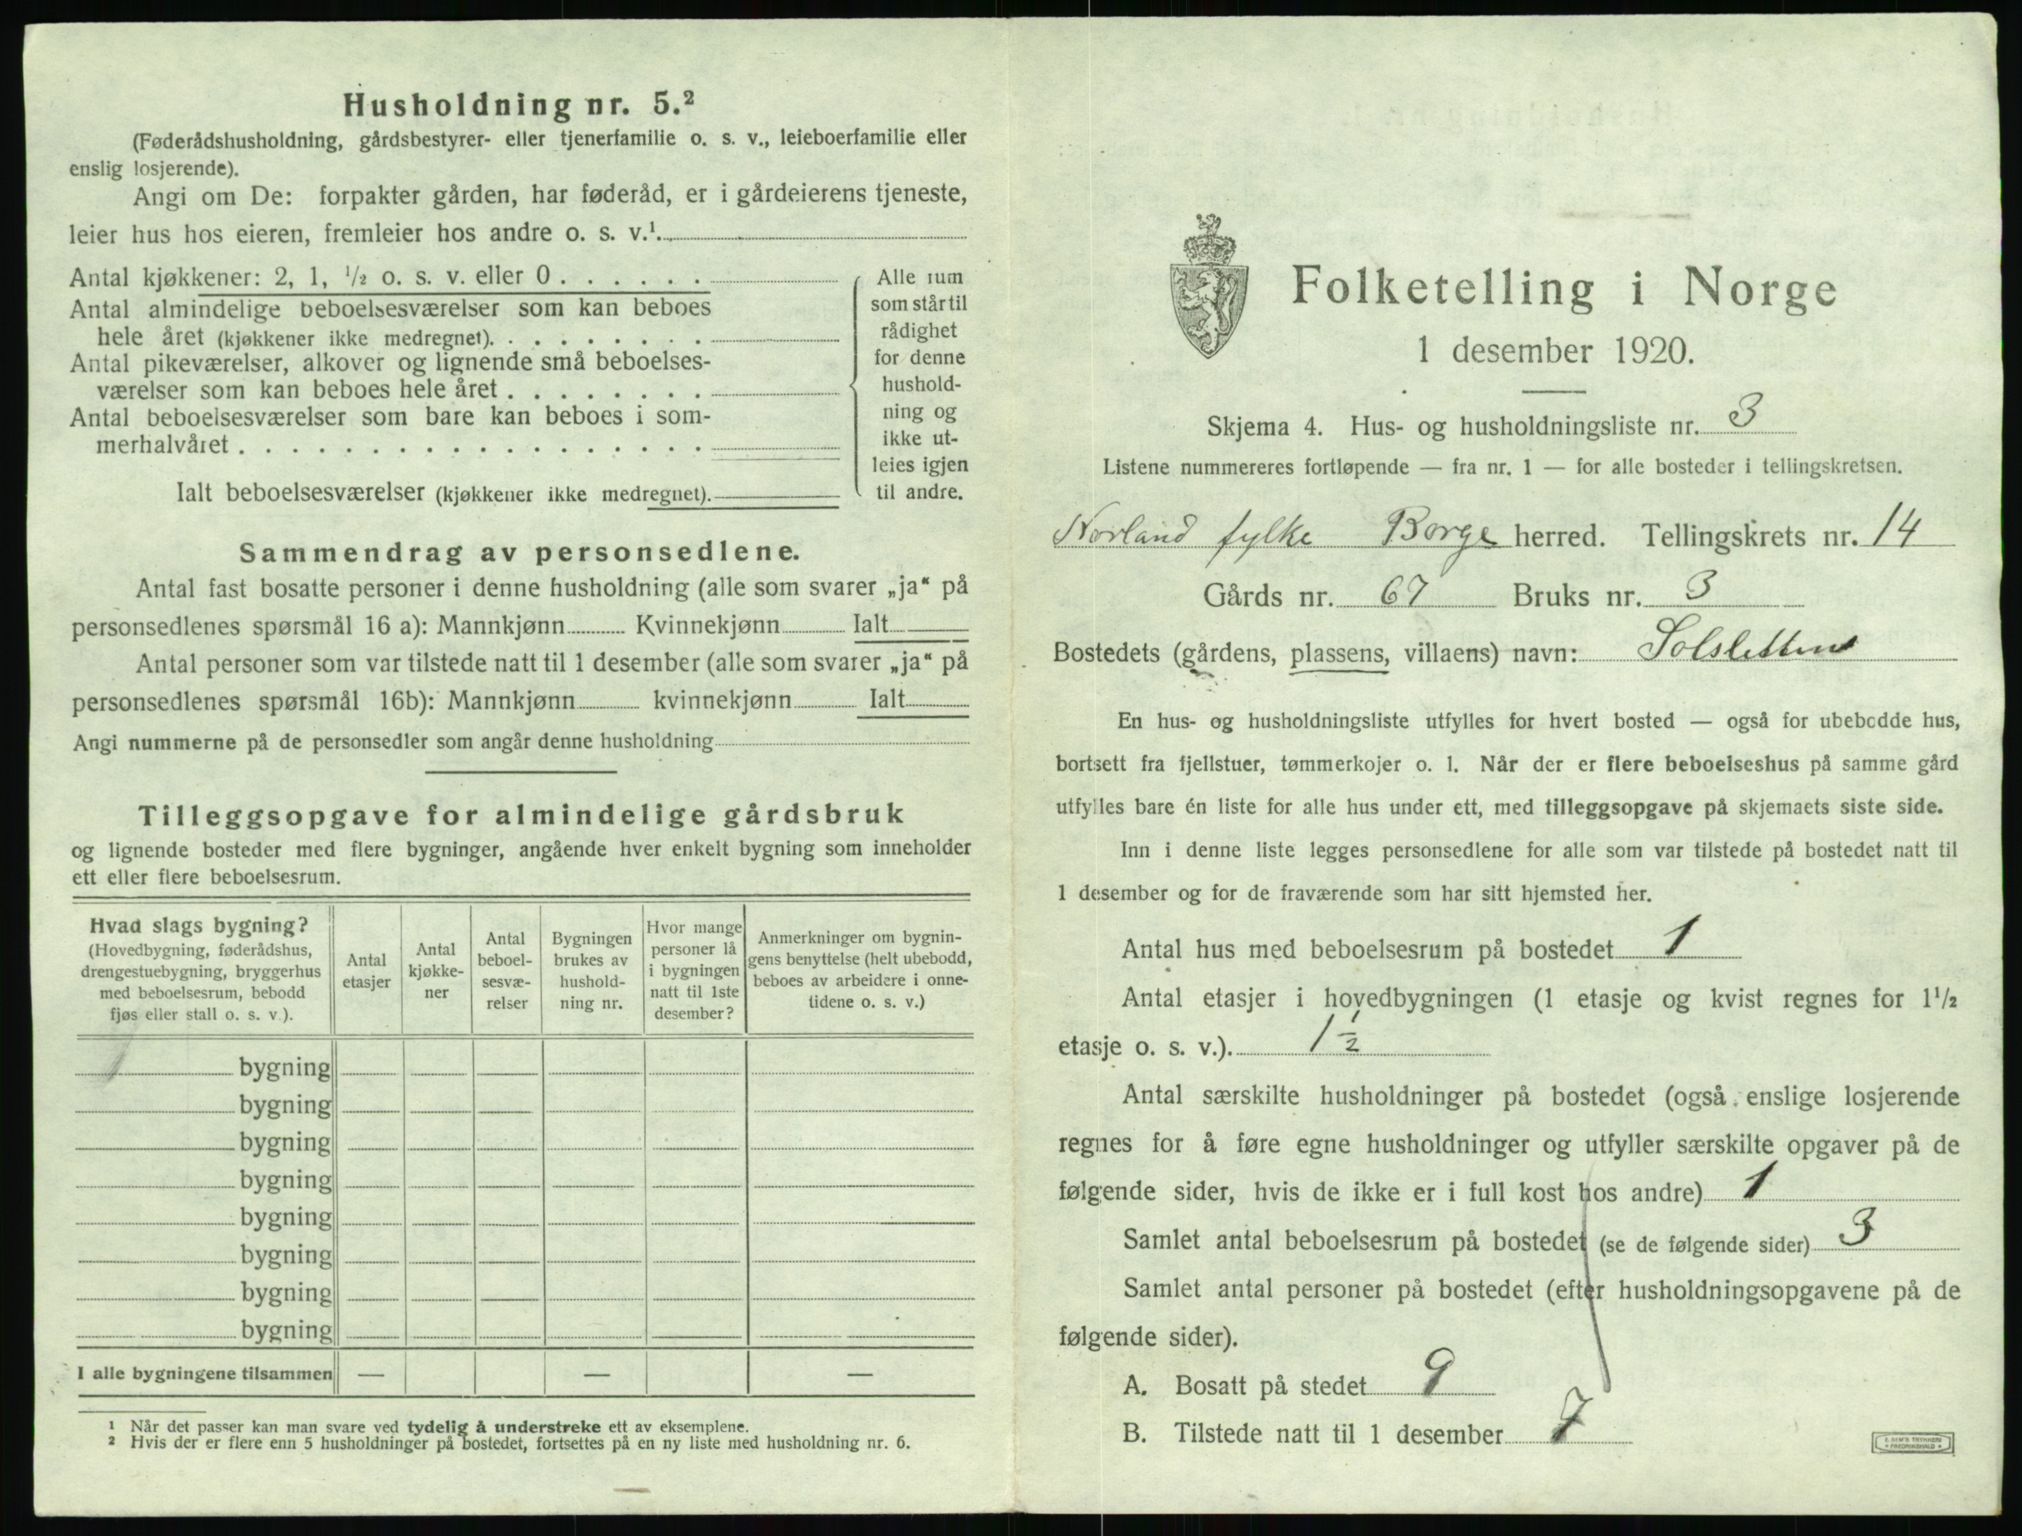 Husholdning nr. 5.²
(Føderådshusholdning, gårdsbestyrer- eller tjenerfamilie o. s. v., leieboerfamilie eller
enslig losjerende).
Angi om De: forpakter gården, har føderåd, er i gårdeierens tjeneste,
leier hus hos eieren, fremleier hos andre o. s. v.¹
Antal kjøkkener: 2, 1, ½ o. s. v. eller 0
Antal almindelige beboelsesværelser som kan beboes
hele året (kjøkkener ikke medregnet).
Antal pikeværelser, alkover og lignende små beboelses-
værelser som kan beboes hele året
Antal beboelsesværelser som bare kan beboes i som-
merhalvåret
Alle rum
som står til
rådighet
for denne
hushold-
ning og
ikke ut-
leies igjen
til andre.
Ialt beboelsesværelser (kjøkkener ikke medregnet).
Sammendrag av personsedlene.
Antal fast bosatte personer i denne husholdning (alle som svarer „ja“ på
personsedlenes spørsmål 16 a): Mannkjønn Kvinnekjønn Ialt
Antal personer som var tilstede natt til 1 desember (alle som svarer „ja“ på
personsedlenes spørsmål 16b): Mannkjønn kvinnekjønn Ialt
Angi nummerne på de personsedler som angår denne husholdning
Tilleggsopgave for almindelige gårdsbruk
og lignende bosteder med flere bygninger, angående hver enkelt bygning som inneholder
ett eller flere beboelsesrum.
Hvad slags bygning?
(Hovedbygning, føderådshus,
drengestuebygning, bryggerhus
med beboelsesrum, bebodd
fjøs eller stall o. s. v.).
Antal
etasjer
Antal
kjøkke-
ner
Antal
beboel-
sesvæ-
relser
Bygningen
brukes av
hushold-
ning nr.
Hvor mange
personer lå
i bygningen
natt til 1ste
desember?
Anmerkninger om bygnin-
gens benyttelse (helt ubebodd,
beboes av arbeidere i onne-
tidene o. s. v.)
1 bygning
bygning
bygning
bygning
bygning
bygning
bygning
bygning
I alle bygningene tilsammen — — —
¹ Når det passer kan man svare ved tydelig å understreke ett av eksemplene.
² Hvis der er flere enn 5 husholdninger på bostedet, fortsettes på en ny liste med husholdning nr. 6.
Folketelling i Norge
1 desember 1920.
Skjema 4. Hus- og husholdningsliste nr. 3
Listene nummereres fortløpende — fra nr. 1 — for alle bosteder i tellingskretsen.
Norland fylke Borge herred. Tellingskrets nr. 14
Gårds nr. 67 Bruks nr. 3
Bostedets (gårdens, plassens, villaens) navn: Solsletten
En hus- og husholdningsliste utfylles for hvert bosted — også for ubebodde hus,
bortsett fra fjellstuer, tømmerkojer o. l. Når der er flere beboelseshus på samme gård
utfylles bare én liste for alle hus under ett, med tilleggsopgave på skjemaets siste side.
Inn i denne liste legges personsedlene for alle som var tilstede på bostedet natt til
1 desember og for de fraværende som har sitt hjemsted her.
Antal hus med beboelsesrum på bostedet 1
Antal etasjer i hovedbygningen (1 etasje og kvist regnes for 1½
etasje o. s. v.). 1½
Antal særskilte husholdninger på bostedet (også enslige losjerende
regnes for å føre egne husholdninger og utfyller særskilte opgaver på de
følgende sider, hvis de ikke er i full kost hos andre) 1
Samlet antal beboelsesrum på bostedet (se de følgende sider) 3
Samlet antal personer på bostedet (efter husholdningsopgavene på de
følgende sider).
A. Bosatt på stedet 9
B. Tilstede natt til 1 desember 7